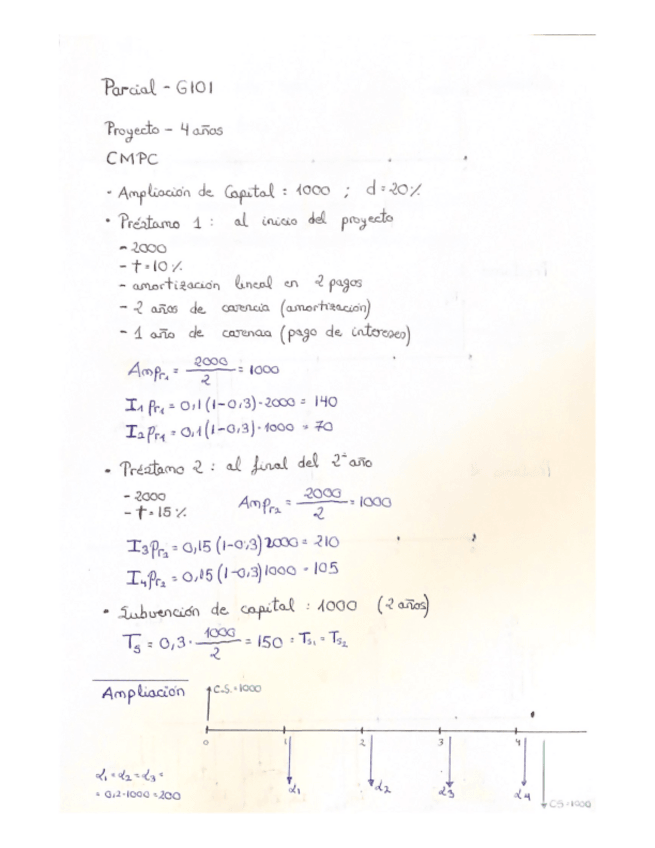 Parcial - G101
Proyecto - 4 años
CMPC
- Ampliación de Capital : 1000 ; d = 20%
• Préstamo 1 : al inicio del proyecto
- 2000
- t = 10 %
- amortización lineal en 2 pagos
- 2 años de carencia (amortización)
- 1 año de carencia (pago de intereses)
Ampr₁ = 2000/2 = 1000
I₁ pr₁ = 0,1 (1-0,3) · 2000 = 140
I₂ pr₁ = 0,1 (1-0,3) · 1000 = 70
• Préstamo 2 : al final del 2º año
- 2000
- t = 15 %
Ampr₂ = 2000/2 = 1000
I₃ pr₂ = 0,15 (1-0,3) 2000 = 210
I₄ pr₂ = 0,15 (1-0,3) 1000 = 105
• Subvención de capital : 1000 (2 años)
Ts = 0,3 · 1000/2 = 150 = Ts₁ = Ts₂
Ampliación
C.S. = 1000
0 1 2 3 4
d₁ = d₂ = d₃ =
= 0,2 · 1000 = 200
d₁ d₂ d₃ d₄
CS = 1000